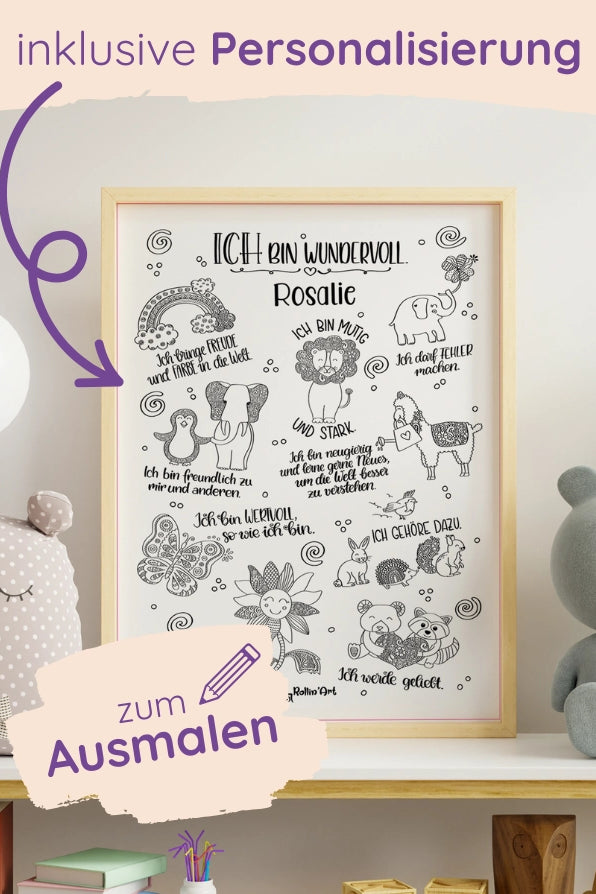 inklusive Personalisierung
ICH BIN WUNDERVOLL.
Rosalie
Ich bringe FREUDE
und FARBE in die Welt.
ICH BIN MUTIG
UND STARK.
Ich darf FEHLER
machen.
Ich bin freundlich zu
mir und anderen.
Ich bin neugierig
und lerne gerne Neues,
um die Welt besser
zu verstehen.
Ich bin WERTVOLL,
so wie ich bin.
ICH GEHÖRE DAZU.
Ich werde geliebt.
Rollin'Art
zum
Ausmalen